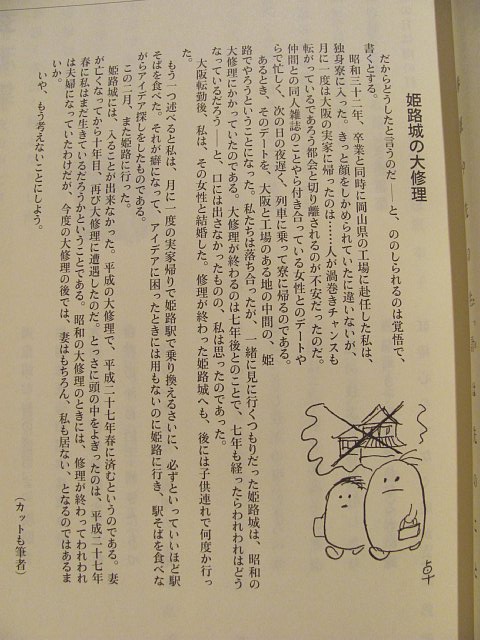 姫路城の大修理
だからどうしたと言うのだ――と、ののしられるのは覚悟で、
書くとする。
昭和三十二年、卒業と同時に岡山県の工場に赴任した私は、
独身寮に入った。きっと顔をしかめられていたに違いないが、
月に一度は大阪の実家に帰ったのは……人が渦巻きチャンスも
転がっているであろう都会と切り離されるのが不安だったのだ。
仲間との同人雑誌のことやら付き合っている女性とのデートや
らで忙しく、次の日の夜遅く、列車に乗って寮に帰るのである。
あるとき、そのデートを、大阪と工場のある地の中間の、姫
路でやろうということになった。私たちは落ち合ったが、一緒に見に行くつもりだった姫路城は、昭和の
大修理にかかっていたのである。大修理が終わるのは七年後とのことで、七年も経ったらわれわれはどう
なっているだろう――と、口には出さなかったものの、私は思ったのであった。
大阪転勤後、私は、その女性と結婚した。修理が終わった姫路城へも、後には子供連れで何度か行っ
た。
もう一つ述べると私は、月に一度の実家帰りで姫路駅で乗り換えるさいに、必ずといっていいほど駅
そばを食べた。それが癖になって、アイデアに困ったときには用もないのに姫路に行き、駅そばを食べな
がらアイデア探しをしたものである。
この二月、また姫路に行った。
姫路城には、入ることが出来なかった。平成の大修理で、平成二十七年春に済むというのである。妻
が亡くなってから十年目、再び大修理に遭遇したのだ。とっさに頭の中をよぎったのは、平成二十七年
春に私はまだ生きているだろうかということである。昭和の大修理のときには、修理が終わってわれわれ
は夫婦になっていたわけだが、今度の大修理の後では、妻はもちろん、私も居ない、となるのではあるま
いか。
いや、もう考えないことにしよう。
（カットも筆者）
卓